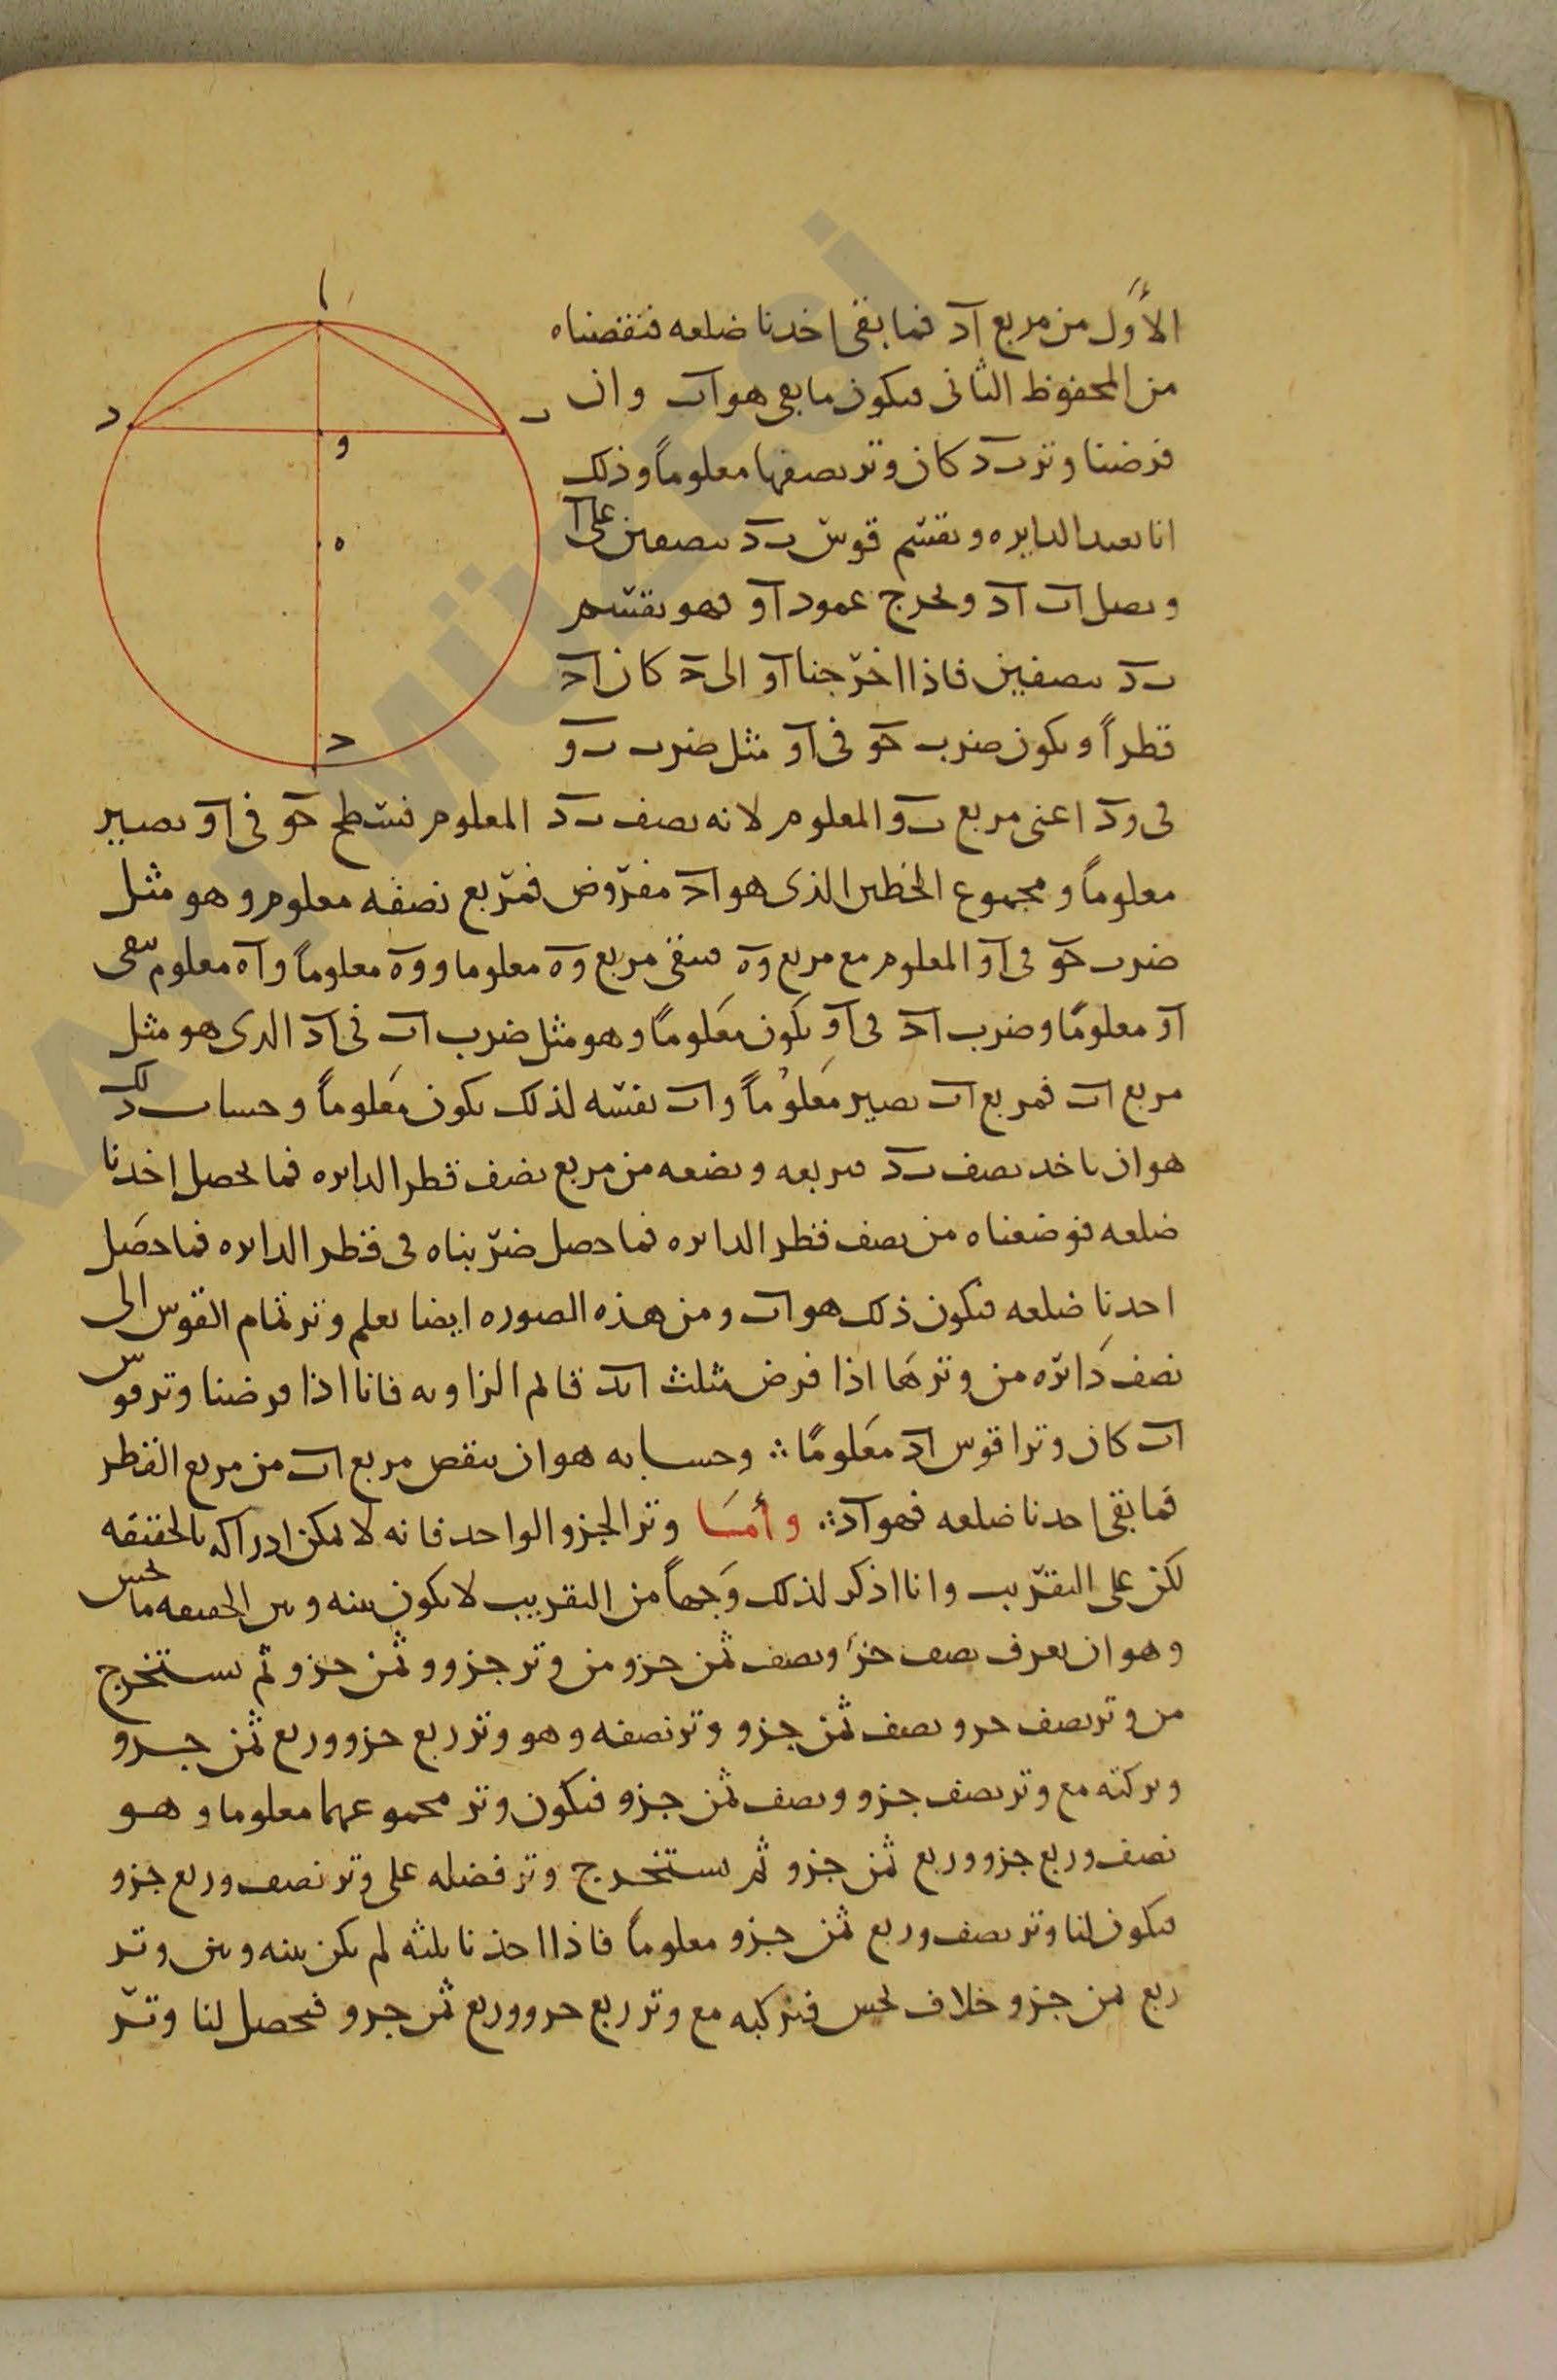 ا
د
ب
و
ه
ح
الأول من مربع اد فما بقى اخدنا ضلعه فنقصناه
من المحفوظ الثانى فيكون ما بقى هو اب وان
فرضنا وتر ب د كان وتر نصفها معلوماً وذلك
انا نعيد الدايره ونقسم قوس ب د بنصفين على ا
ونصل اب اد ونخرج عمود او فهو يقسم
ب د بنصفين فاذا اخرجنا او الى ح كان اح
قطراً ويكون ضرب حو فى او مثل ضرب ب و
فى و د اعنى مربع ب و المعلوم لانه نصف ب د المعلوم فسطح حو فى او يصير
معلوماً ومجموع الخطين الذى هو اح مفروض فمربع نصفه معلوم وهو مثل
ضرب حو فى او المعلوم مع مربع وه فيبقى مربع وه معلوما و وه معلوماً و اه معلوم يبقى
او معلومًا وضرب اح فى او يكون معلومًا وهو مثل ضرب اب فى اد الدى هو مثل
مربع اب فمربع اب يصير معلوماً واب نفسه لذلك يكون معلوماً وحساب ذلك
هو ان ناخد نصف ب د نربعه ونضعه من مربع نصف قطر الدايره فما يحصل اخدنا
ضلعه فوضعناه من نصف قطر الدايره فما حصل ضربناه فى قطر الدايره فما حصل
اخدنا ضلعه فيكون ذلك هو اب ومن هذه الصوره ايضا يعلم وتر تمام القوس الى
نصف دائره من وترها اذا فرض مثلث ابد قائم الزاويه فانا اذا فرضنا وتر قوس
اب كان وترا قوس اد معلومًا ∴ وحسابه هو ان ينقص مربع اب من مربع القطر
فما بقى اخدنا ضلعه فهو اد ∴ وأمَا وتر الجزو الواحد فانه لا يمكن ادراكه بالحقيقه
لكن على التقريب وانا اذكر لذلك وَجهاً من التقريب لا يكون بينه وبين الحقيقه ما يحس
وهو ان يعرف نصف جزء ونصف ثمن جزو من وتر جزو وثمن جزو ثم يستخرج
من وتر نصف جزو نصف ثمن جزو وتر نصفه وهو وتر ربع جزو وربع ثمن جزو
ونركبه مع وتر نصف جزو ونصف ثمن جزو فيكون وتر مجموعهما معلوما وهو
نصف وربع جزو وربع ثمن جزو ثم يستخرج وتر فضله على وتر نصف وربع جزو
فيكون لنا وتر نصف وربع ثمن جزو معلوماً فاذا اخذنا ثلثه لم يكن بينه وبين وتر
ربع ثمن جزو خلاف يحس فنركبه مع وتر ربع جزو وربع ثمن جزو فيحصل لنا وتر